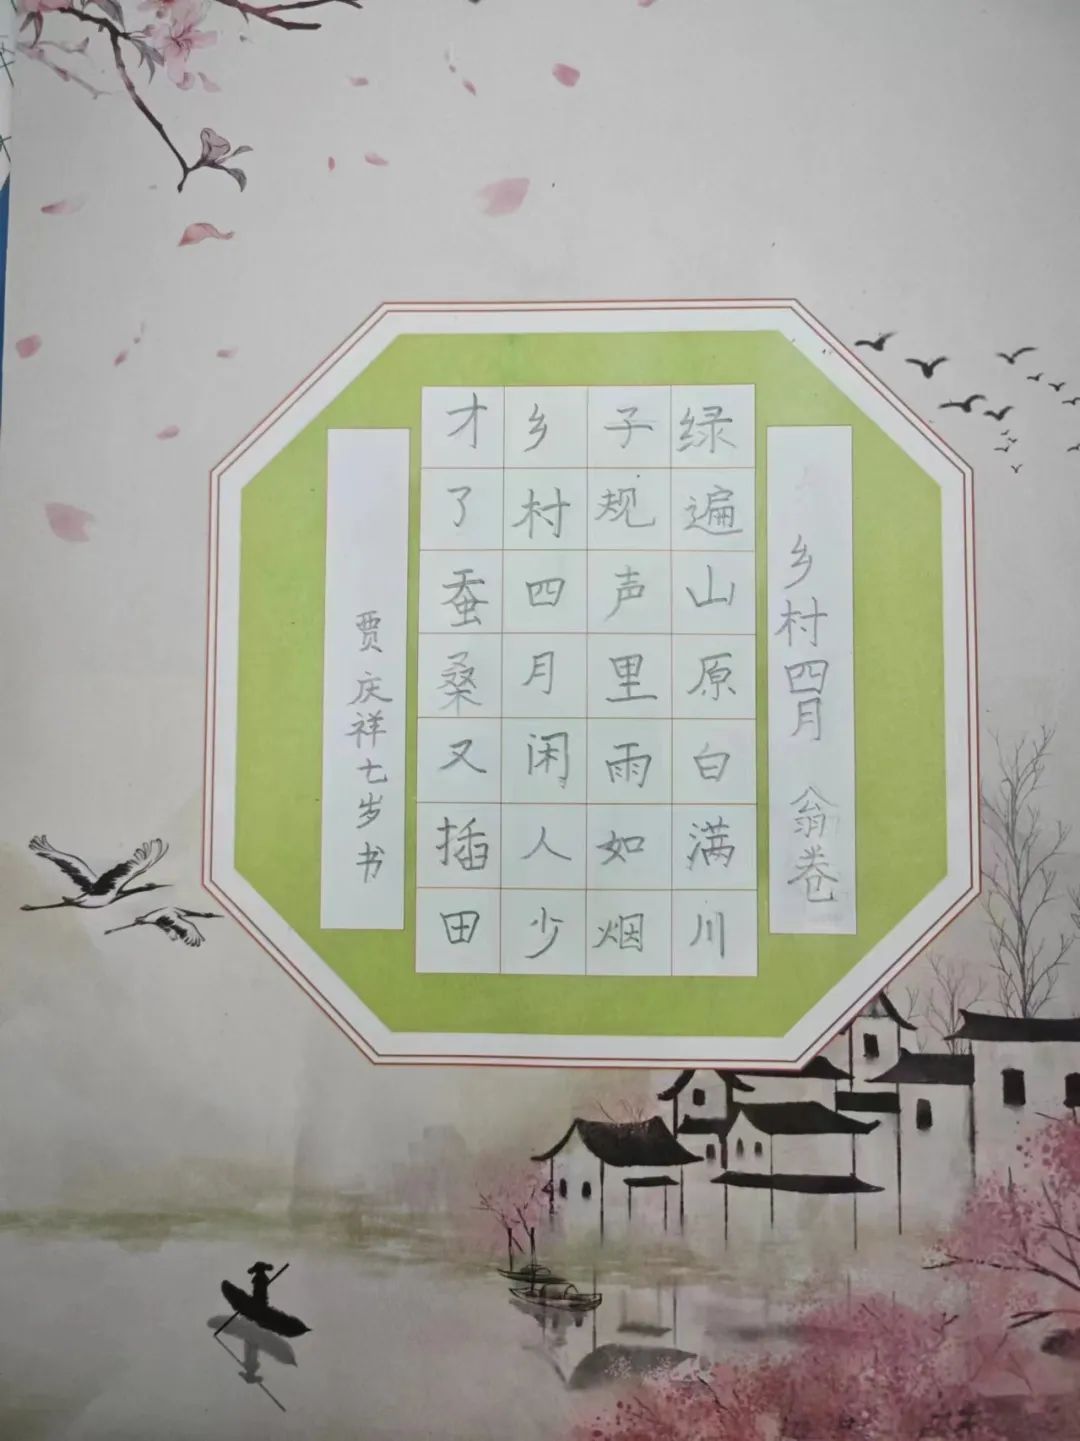 乡村四月 翁卷
绿遍山原白满川
子规声里雨如烟
乡村四月闲人少
才了蚕桑又插田
贾庆祥七岁书